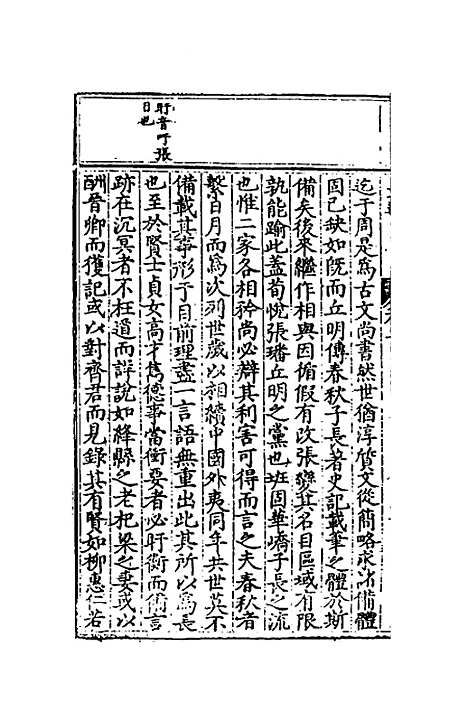 迄于周是爲古文尚書然世猶淳質文從簡略求諸備體
固已缺如既而丘明傳春秋子長著史記載筆之體於斯
備矣後來繼作相與因循假有改張變其名目區域有限
孰能踰此盖荀悅張璠丘明之黨也班固華嶠子長之流
也惟二家各相矜尚必辯其利害可得而言之夫春秋者
繫日月而爲次列世歲以相續中國外夷同年共世莫不
備載其事形于目前理盡一言語無重出此其所以爲長
也至於賢士貞女高才雋德事當衝要者必盱衡而備言
跡在沉冥者不枉道而詳說如絳縣之老杞梁之妻或以
酬晉卿而獲記或以對齊君而見錄其有賢如柳惠仁若
盱音吁張
目也